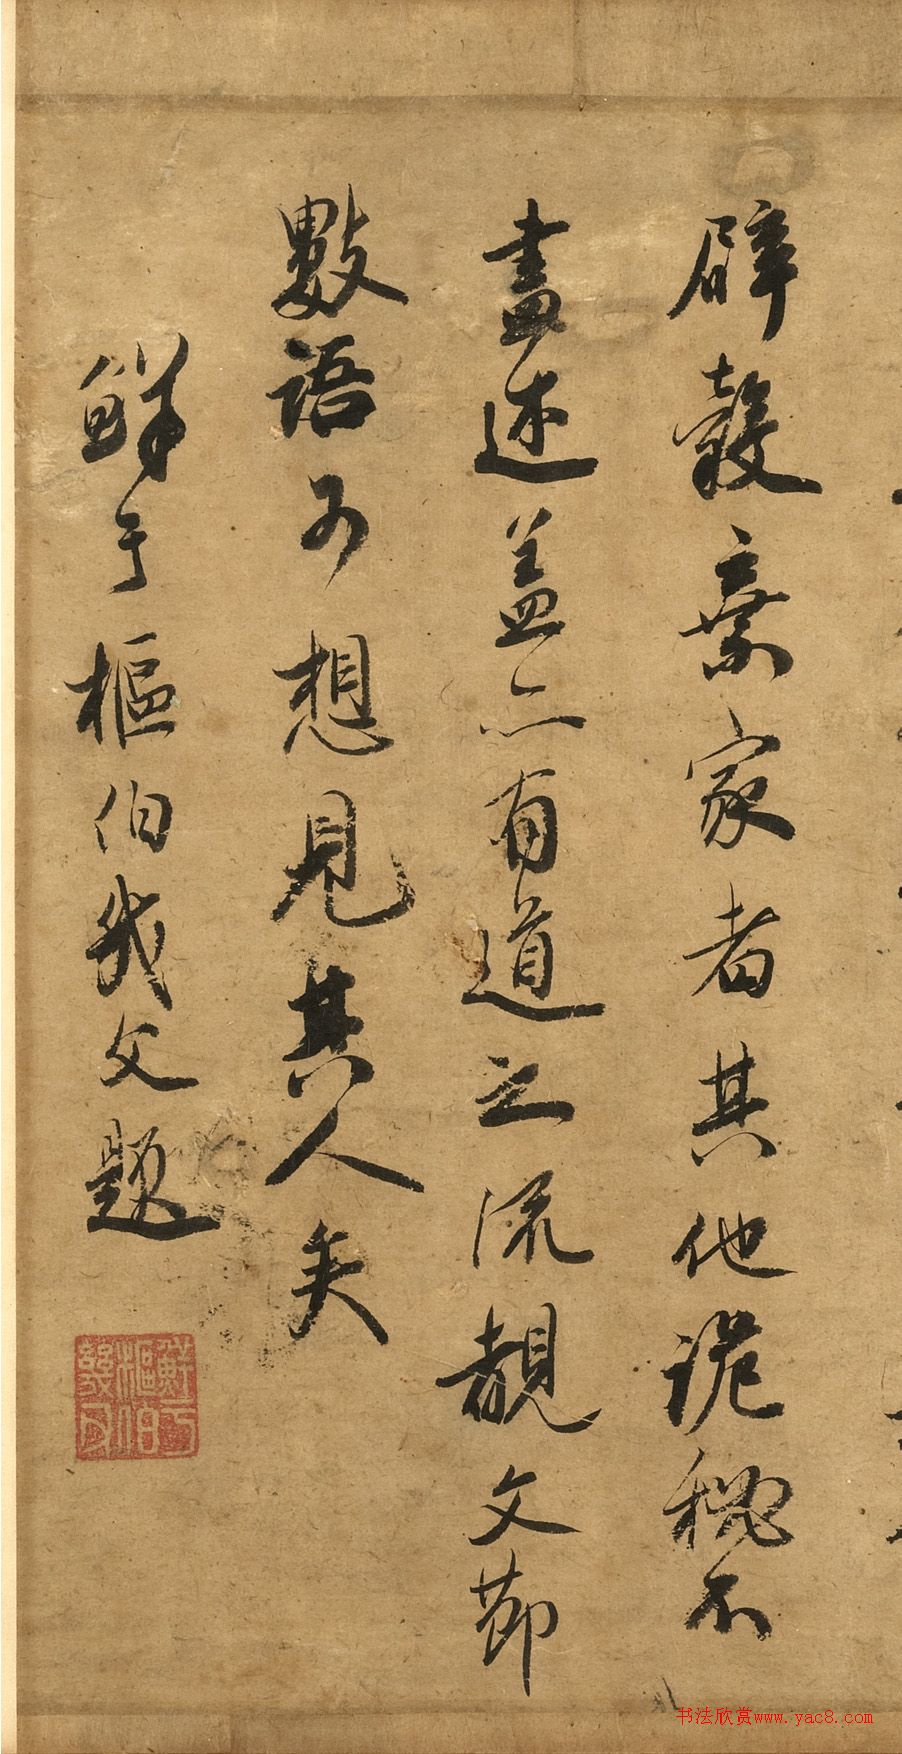 辟穀棄家者其他詭秘不
盡述蓋亦有道之流觀文節
數語可想見其人矣
鮮于樞伯幾父題
鮮于樞伯幾父
书法欣赏www.yac8.com